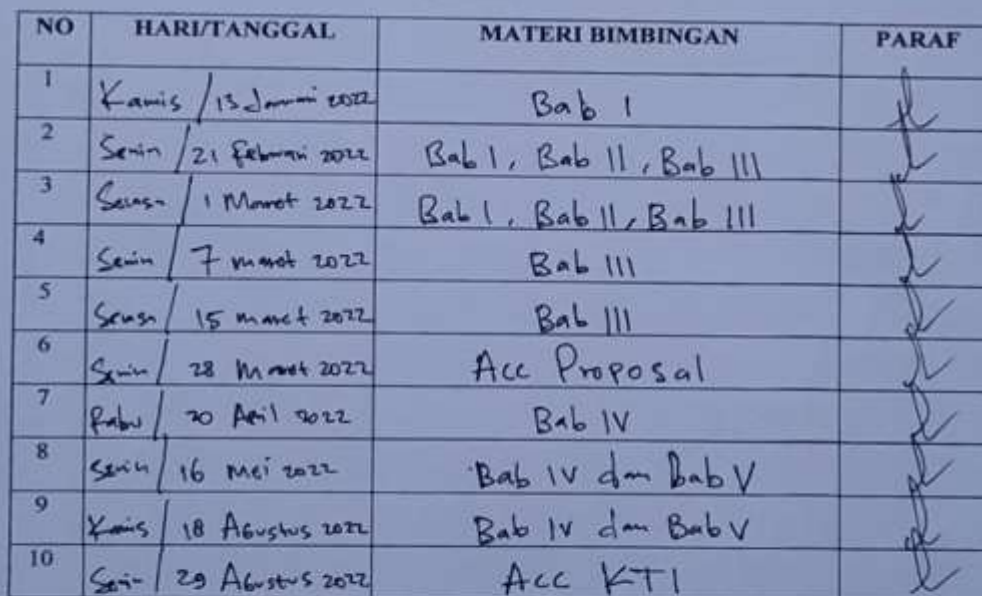 NO HARI/TANGGAL MATERI BIMBINGAN PARAF
1 Kamis / 13 Januari 2022 Bab I
2 Senin / 21 Februari 2022 Bab I, Bab II, Bab III
3 Selasa / 1 Maret 2022 Bab I, Bab II, Bab III
4 Senin / 7 maret 2022 Bab III
5 Selasa / 15 maret 2022 Bab III
6 Senin / 28 Maret 2022 Acc Proposal
7 Rabu / 20 April 2022 Bab IV
8 Senin / 16 Mei 2022 Bab IV dan Bab V
9 Kamis / 18 Agustus 2022 Bab IV dan Bab V
10 Senin / 29 Agustus 2022 Acc KTI